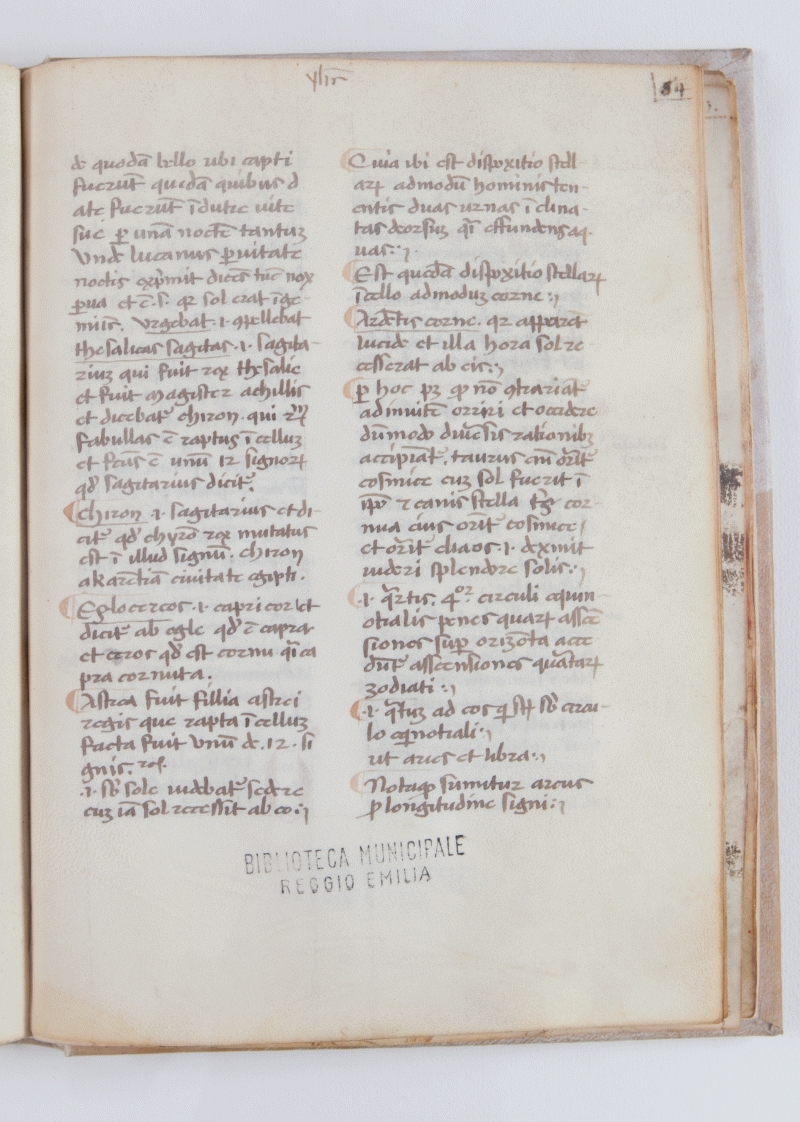 xliiii
54
de quodã bello ubi capti
fuerũt quedã quibus d
ate fuerũt ĩdutie uite
sue ꝑ unã noctẽ tantuꝫ
Vndẽ lucanus ꝑuitatẽ
noctis exp̃mit dicẽs tũc nox
ꝑua et c̃. s. qꝛ sol erat ĩ ge
minis. Vrgebat .i. ꝯpellebat
thesalicas sagitas .i. sagita
riuꝫ qui fuit rex thesalie
et fuit magister achillis
et dicebat᷑ chiron. qui
fabullas ẽ raptus ĩ celluꝫ
et fc̃us ẽ unũ 12 signoꝝ
qď sagitarius dicit᷑.
Chiron .i. sagitarius et di
cit᷑ qď chyrõ rex mutatus
est ĩ illud signũ. chiron
a karẽtia ciuitate egipti.
Eglocercos .i. capricor̃ et
dicit᷑ ab egle qď ẽ capra
et ceros qď est cornu. q̃i ca
pra cornuta.
Astrea fuit fillia astrei
regis que rapta ĩ celluꝫ
facta fuit unũ de .12. si
gnis.
.i. sb̃ sole uidebat᷑ sedere
cuꝫ iã sol recessit ab eo
Quia ibi est dispoxitio stell
aꝝ admodũ hominis ten
entis duas urnas ĩclina
tas deorsuꝫ q̃i effundens aq
uas
Est quedã dispoxitio stellaꝝ
ĩ cello admoduꝫ corne
Ardẽtis corne. qꝛ apparet
lucide et illa hora sol re
cesserat ab eis
ꝑ hoc pꝫ ꝙ nõ ꝯtrariat᷑
adinuicẽ orriri et occidere
dũmodo diuẽsis rationibꝫ
accipiãt᷑. taurus eni᷑ orit᷑
cosmice cuꝫ sol fuerit ĩ
ip̃o ⁊ canis stella cor
nua eius orit᷑ cosmice
et orit᷑ eliacos .i. dexinit
uideri splendore solis
.i. q̃rtis. 4ᵒʳ circuli equin
otialis penes quaꝝ assce
siones suꝑ orizõta acce
dũt asscensiones quãtaꝝ
zodiati
.i. q̃tuꝫ ad eos q̃ sũt sb̃ circu
lo eq̃notiali
ut aries et libra
Nota ꝙ sumitur arcus
ꝓ longitudine signi
BIBLIOTECA MUNICIPALE
REGGIO EMILIA